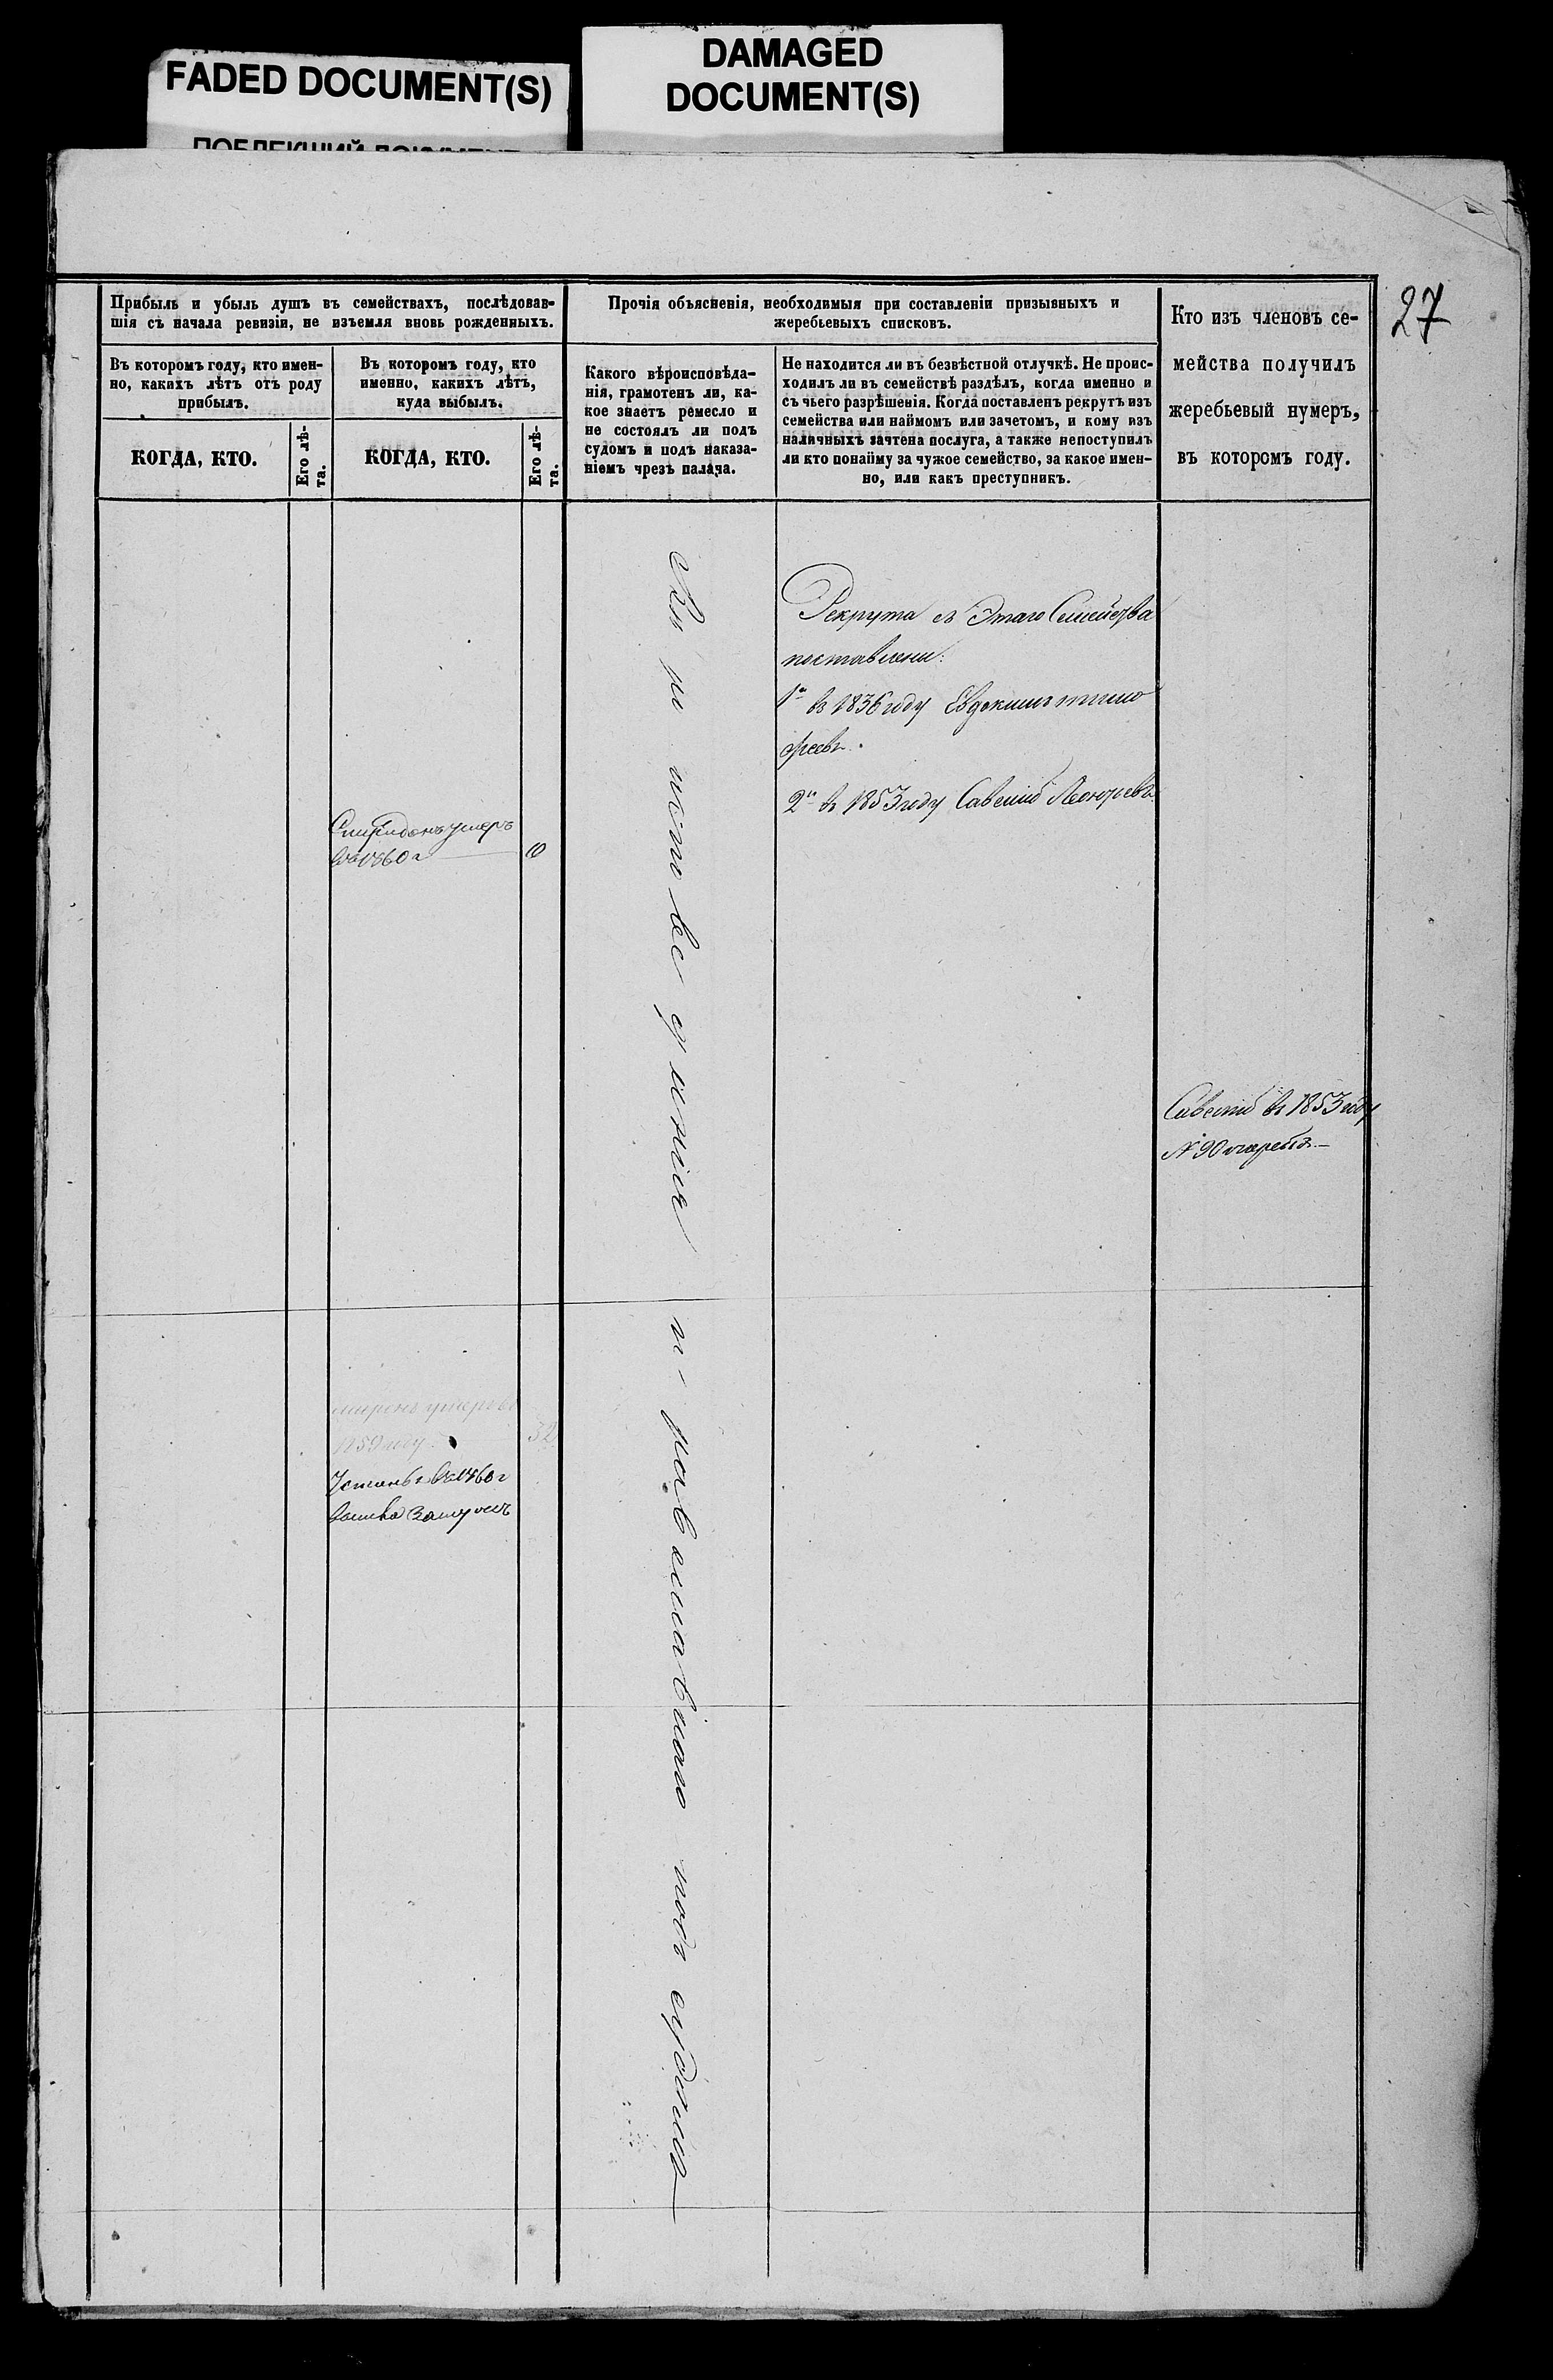 FADED DOCUMENT(S)
DAMAGED
DOCUMENT(S)
ПОБЛЕКШИЙ ДОКУМЕНТ
27
Прибыль и убыль душъ въ семействахъ, послѣдовав-
шія съ начала ревизіи, не изъемля вновь рожденныхъ.
Въ которомъ году, кто имен-
но, какихъ лѣтъ отъ роду
прибылъ.
КОГДА, КТО.
Его лѣ-
та.
Въ которомъ году, кто
именно, какихъ лѣтъ,
куда выбылъ.
КОГДА, КТО.
Его лѣ-
та.
Прочія объясненія, необходимыя при составленіи призывныхъ и
жеребьевыхъ списковъ.
Какого вѣроисповѣда-
нія, грамотенъ ли, ка-
кое знаетъ ремесло и
не состоялъ ли подъ
судомъ и подъ наказа-
ніемъ чрезъ палача.
Не находится ли въ безвѣстной отлучкѣ. Не проис-
ходилъ ли въ семействѣ раздѣлъ, когда именно и
съ чьего разрѣшенія. Когда поставленъ рекрутъ изъ
семейства или наймомъ или зачетомъ, и кому изъ
наличныхъ зачтена послуга, а также непоступилъ
ли кто понайму за чужое семейство, за какое имен-
но, или какъ преступникъ.
Кто изъ членовъ се-
мейства получилъ
жеребьевый нумеръ,
въ которомъ году.
Спиридонъ умеръ
въ 1860 г
Миронъ умеръ въ
1859 году
32
Устинья въ 1860 г
вышла замужъ
Рекрута съ Этаго Семейства
поставлены:
1й въ 1836 году Евдокимъ тимо
феевъ.
2й въ 1853 году Савелій Леонтьевъ
Савелій въ 1853 году
№ 90 жеребья.